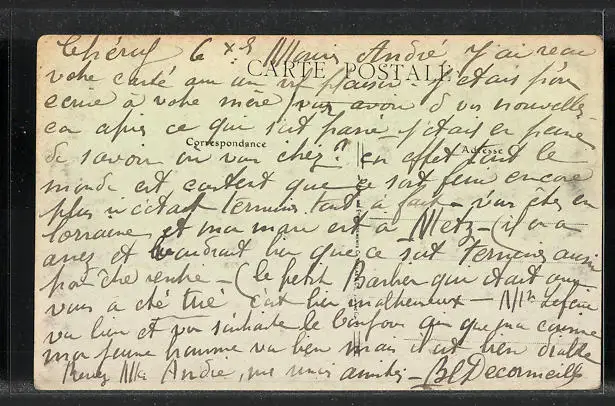 6 Xs Mons André j'ai reçu
CARTE POSTALE
votre carte avec un vif plaisir j'étais
écrire à votre mère pour avoir d vos nouvelles
car après ce qui s'est passé j'étais en peine
Correspondance
Adresse
de savoir où vous étiez? en effet tout le
monde est content que ce soit fini encore
plus si c'était terminé tout à fait – vous êtes en
Lorraine et mon mari est à Metz – (il en a
assez et voudrait bien que ce soit terminé aussi
pour être rentré – (le petit Barbier qui était avec
vous a été tué c'est bien malheureux –
va bien et vous souhaite le bonjour ainsi que
mon jeune homme va bien mais il est bien diable
Recevez Mr André, mes amitiés –